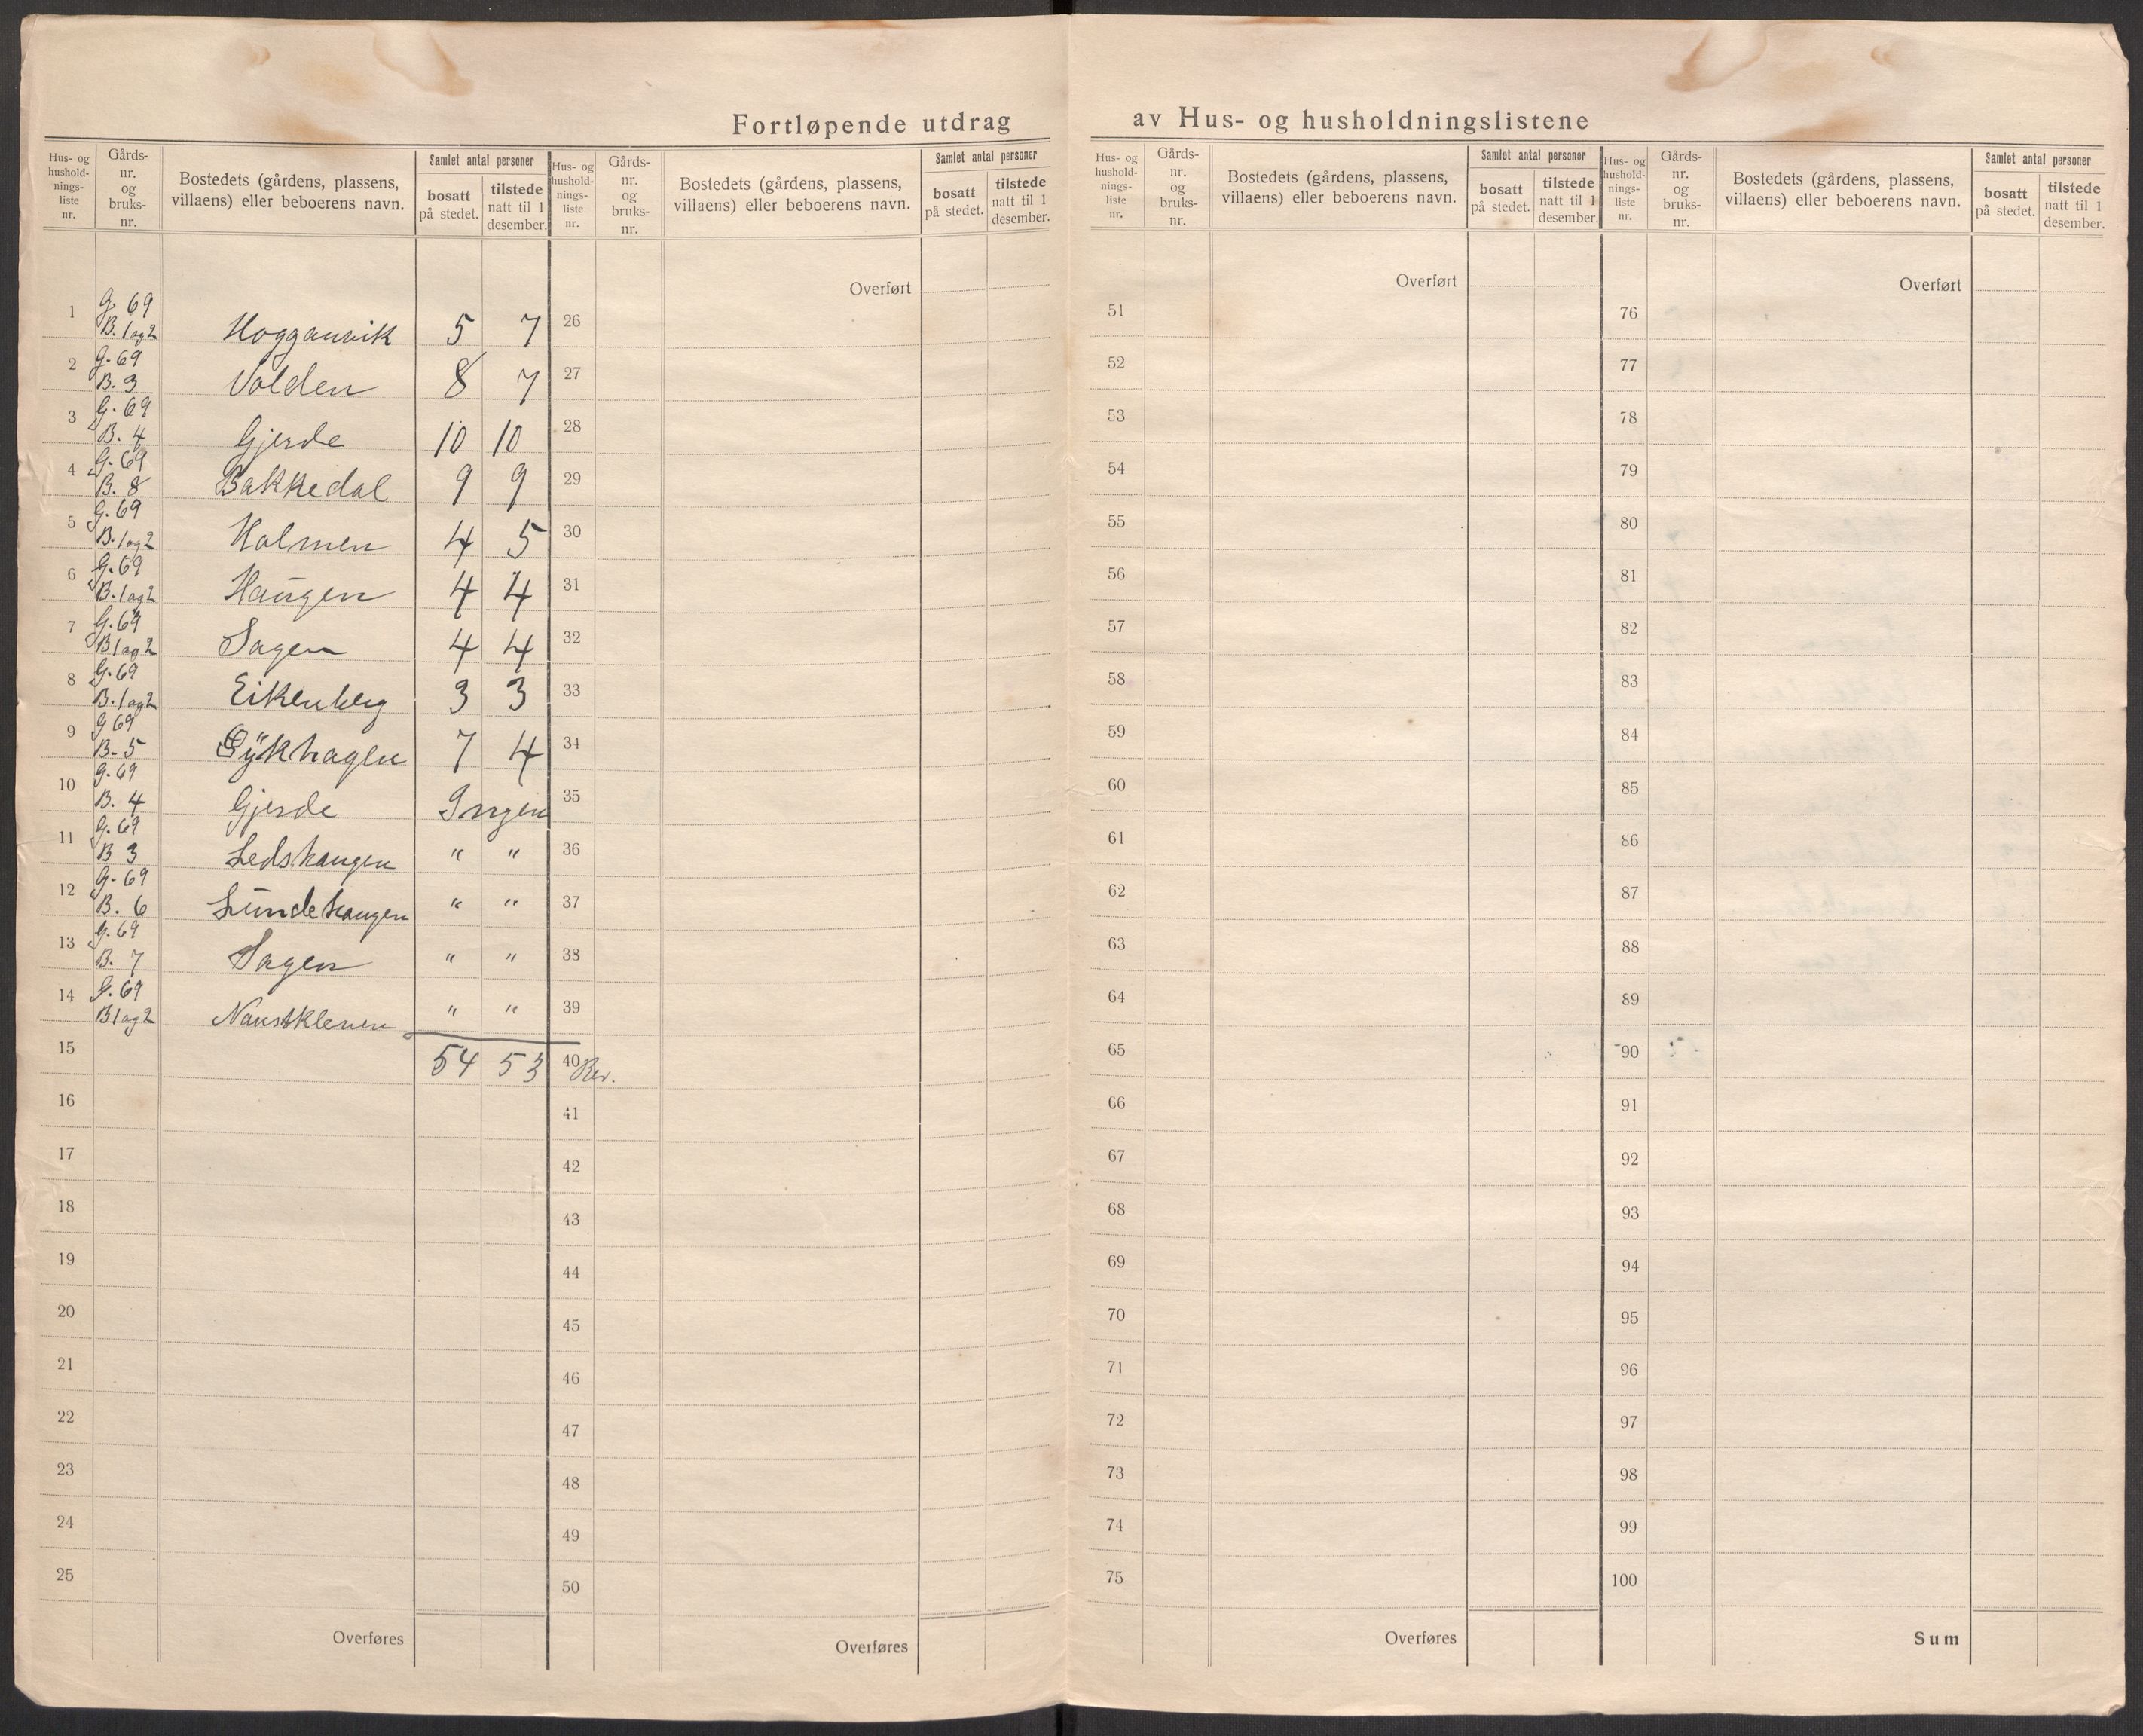 Fortløpende utdrag av Hus- og husholdningslistene
Hus- og hushold-nings-liste nr. Gårds-nr. og bruks-nr. Bostedets (gårdens, plassens, villaens) eller beboerens navn. Samlet antal personer bosatt på stedet. tilstede natt til 1 desember.
Hus- og hushold-nings-liste nr. Gårds-nr. og bruks-nr. Bostedets (gårdens, plassens, villaens) eller beboerens navn. Samlet antal personer bosatt på stedet. tilstede natt til 1 desember.
Hus- og hushold-nings-liste nr. Gårds-nr. og bruks-nr. Bostedets (gårdens, plassens, villaens) eller beboerens navn. Samlet antal personer bosatt på stedet. tilstede natt til 1 desember.
Hus- og hushold-nings-liste nr. Gårds-nr. og bruks-nr. Bostedets (gårdens, plassens, villaens) eller beboerens navn. Samlet antal personer bosatt på stedet. tilstede natt til 1 desember.
Overført Overført Overført
1 G. 69 B. 1 og 2 Hogganvik 5 7
2 G. 69 B. 3 Volden 8 7
3 G. 69 B. 4 Gjerde 10 10
4 G. 69 B. 8 Bakkedal 9 9
5 G. 69 B. 1 og 2 Holmen 4 5
6 G. 69 B. 1 og 2 Haugen 4 4
7 G. 69 B 1 og 2 Sagen 4 4
8 G. 69 B. 1 og 2 Eikenberg 3 3
9 G 69 B. 5 7 4
10 G. 69 B. 4 Gjerde Ingen
11 G. 69 B 3 Ledshaugen " "
12 G. 69 B. 6 Lundehaugen " "
13 G. 69 B. 7 Sagen " "
14 G. 69 B 1 og 2 Naustkleven " "
15 54 53 Rev.
16
17
18
19
20
21
22
23
24
25
Overføres
26
27
28
29
30
31
32
33
34
35
36
37
38
39
40
41
42
43
44
45
46
47
48
49
50
Overføres
51
52
53
54
55
56
57
58
59
60
61
62
63
64
65
66
67
68
69
70
71
72
73
74
75
Overføres
76
77
78
79
80
81
82
83
84
85
86
87
88
89
90
91
92
93
94
95
96
97
98
99
100
Sum